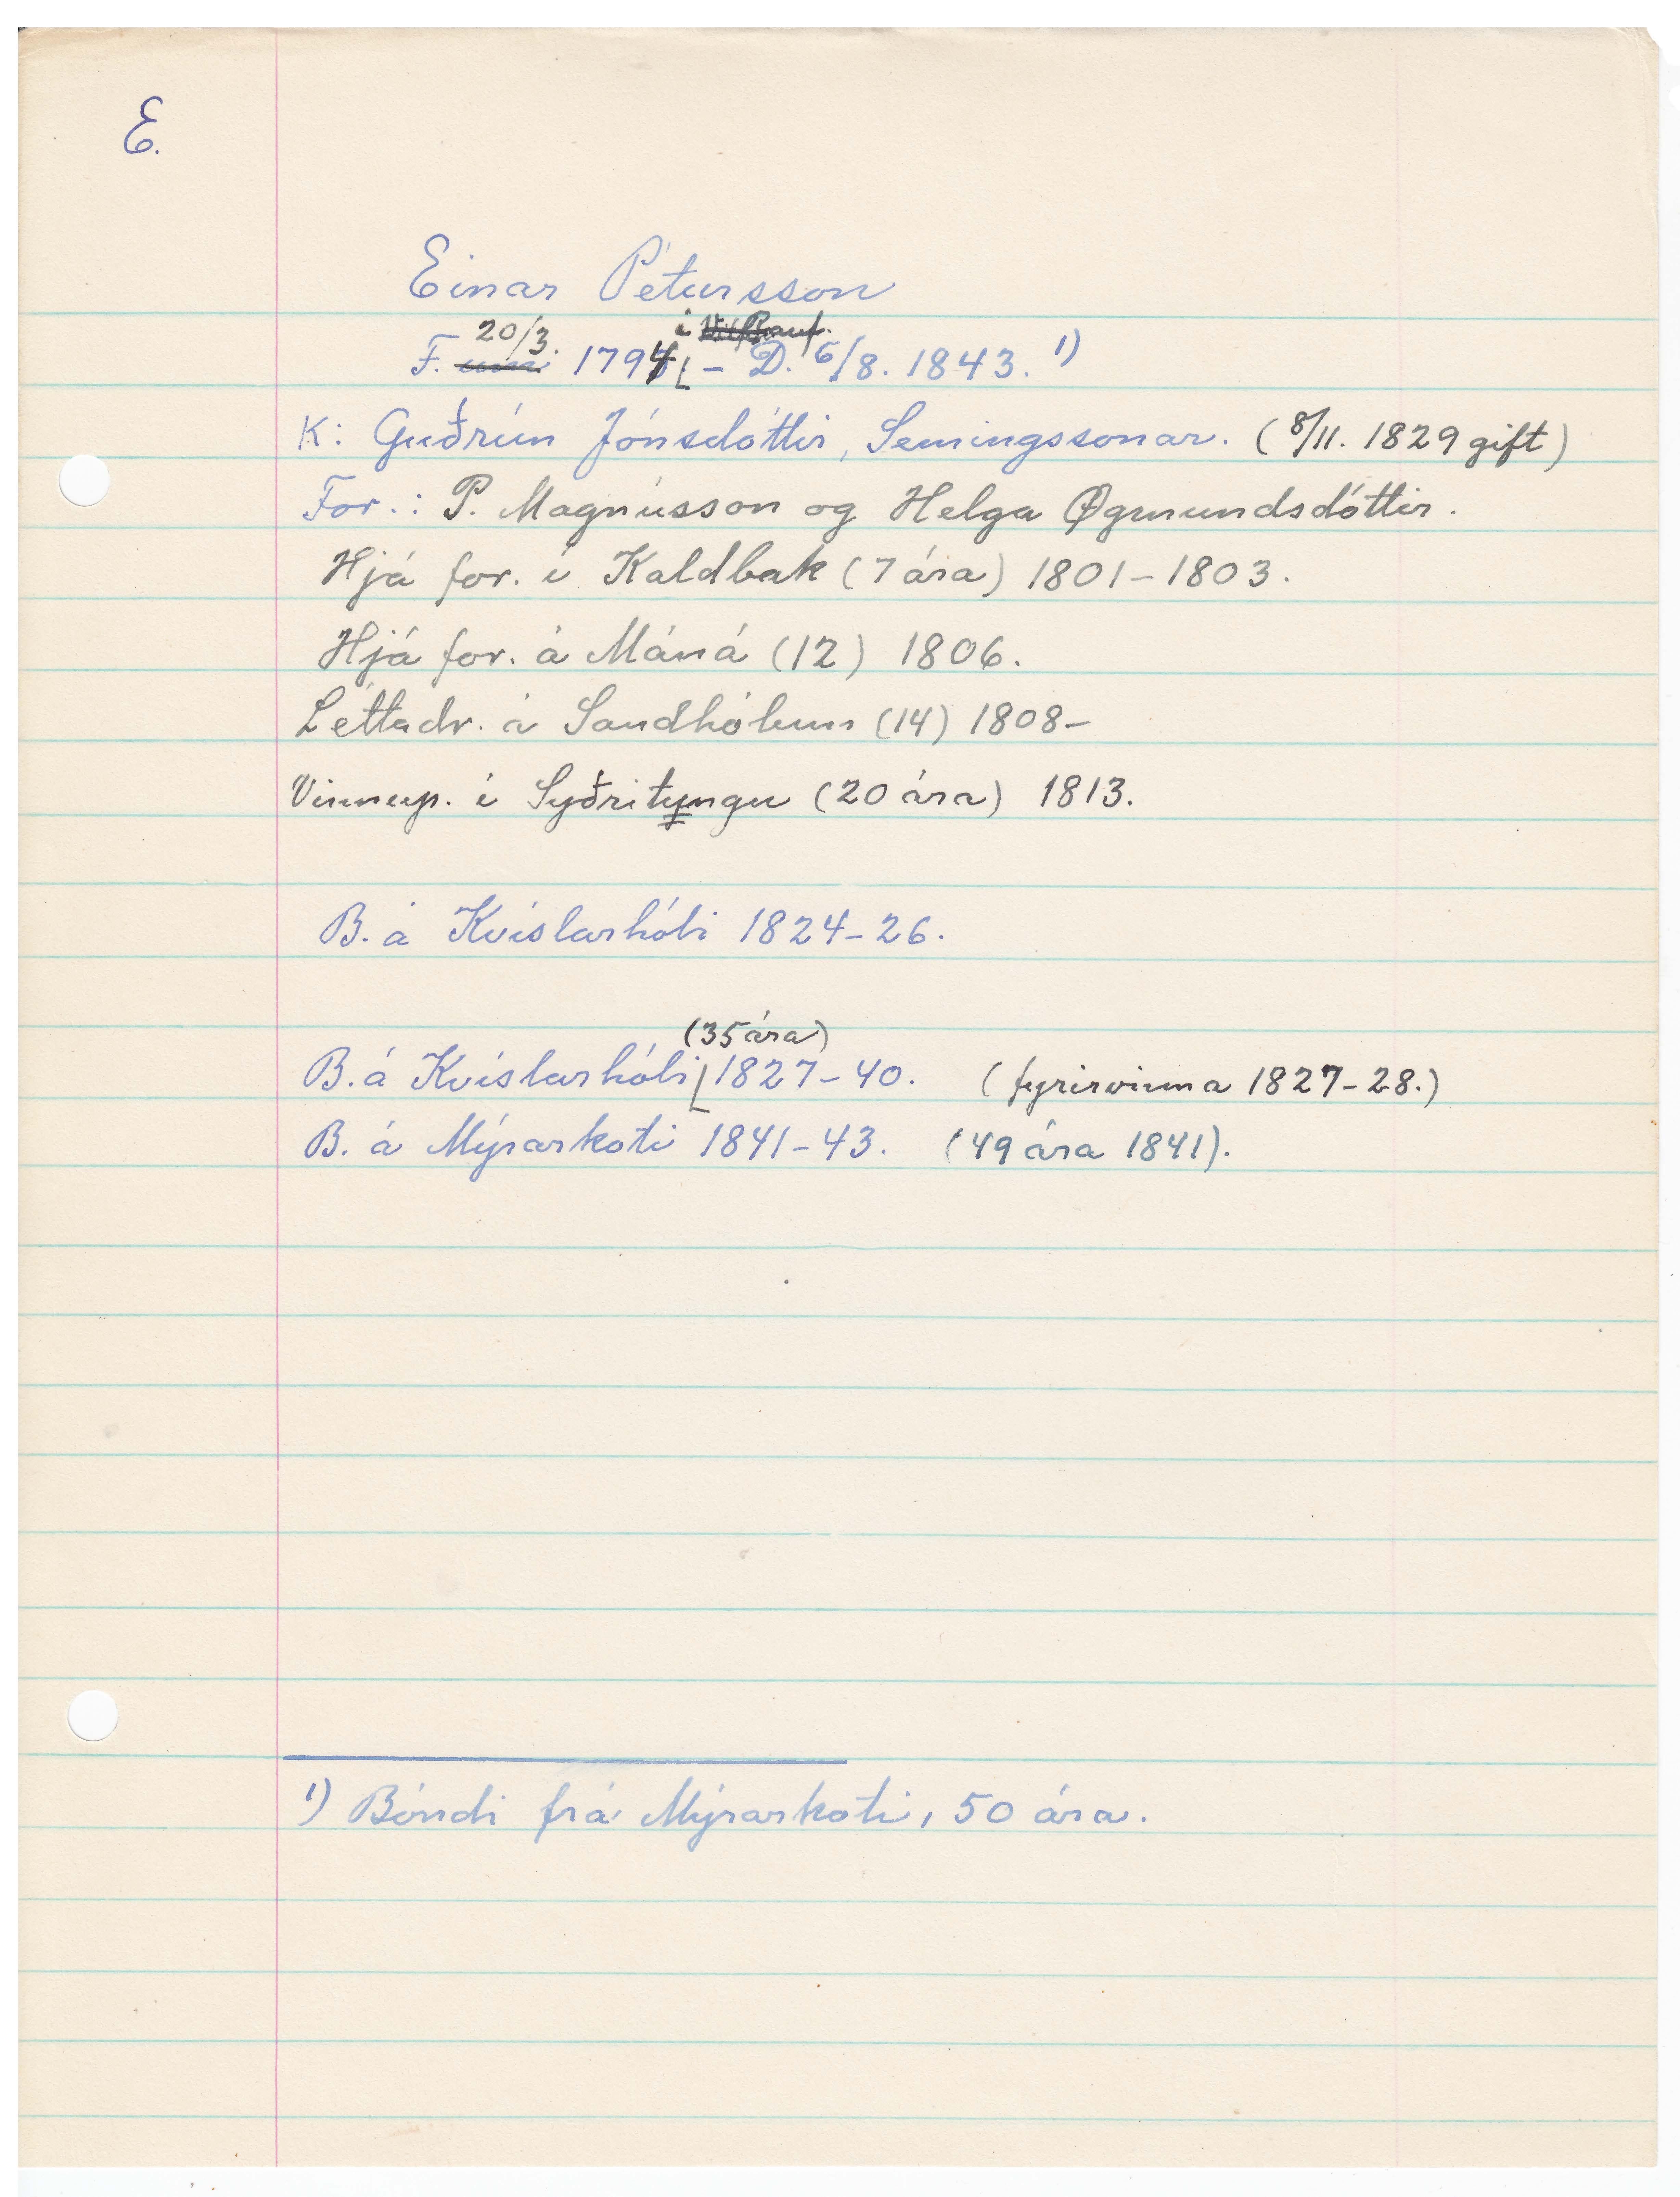 E.
Einar Pétursson
F. 20/3. 1794 í – D. 6/8. 1843. 1)
K: Guðrún Jónsdóttir, Semingssonar. (8/11. 1829 gift)
For.: P. Magnússon og Helga Øgmundsdóttir.
Hjá for. í Kaldbak (7 ára) 1801–1803.
Hjá for. á Máná (12) 1806.
Léttadr. á Sandhólum (14) 1808–
Vinnup. í Syðritungu (20 ára) 1813.
B. á Kvíslarhóli 1824–26.
(35 ára)
B. á Kvíslarhóli 1827–40. (fyrirvinna 1827–28.)
B. á Mýrarkoti 1841–43. (49 ára 1841).
1) Bóndi frá Mýrarkoti, 50 ára.